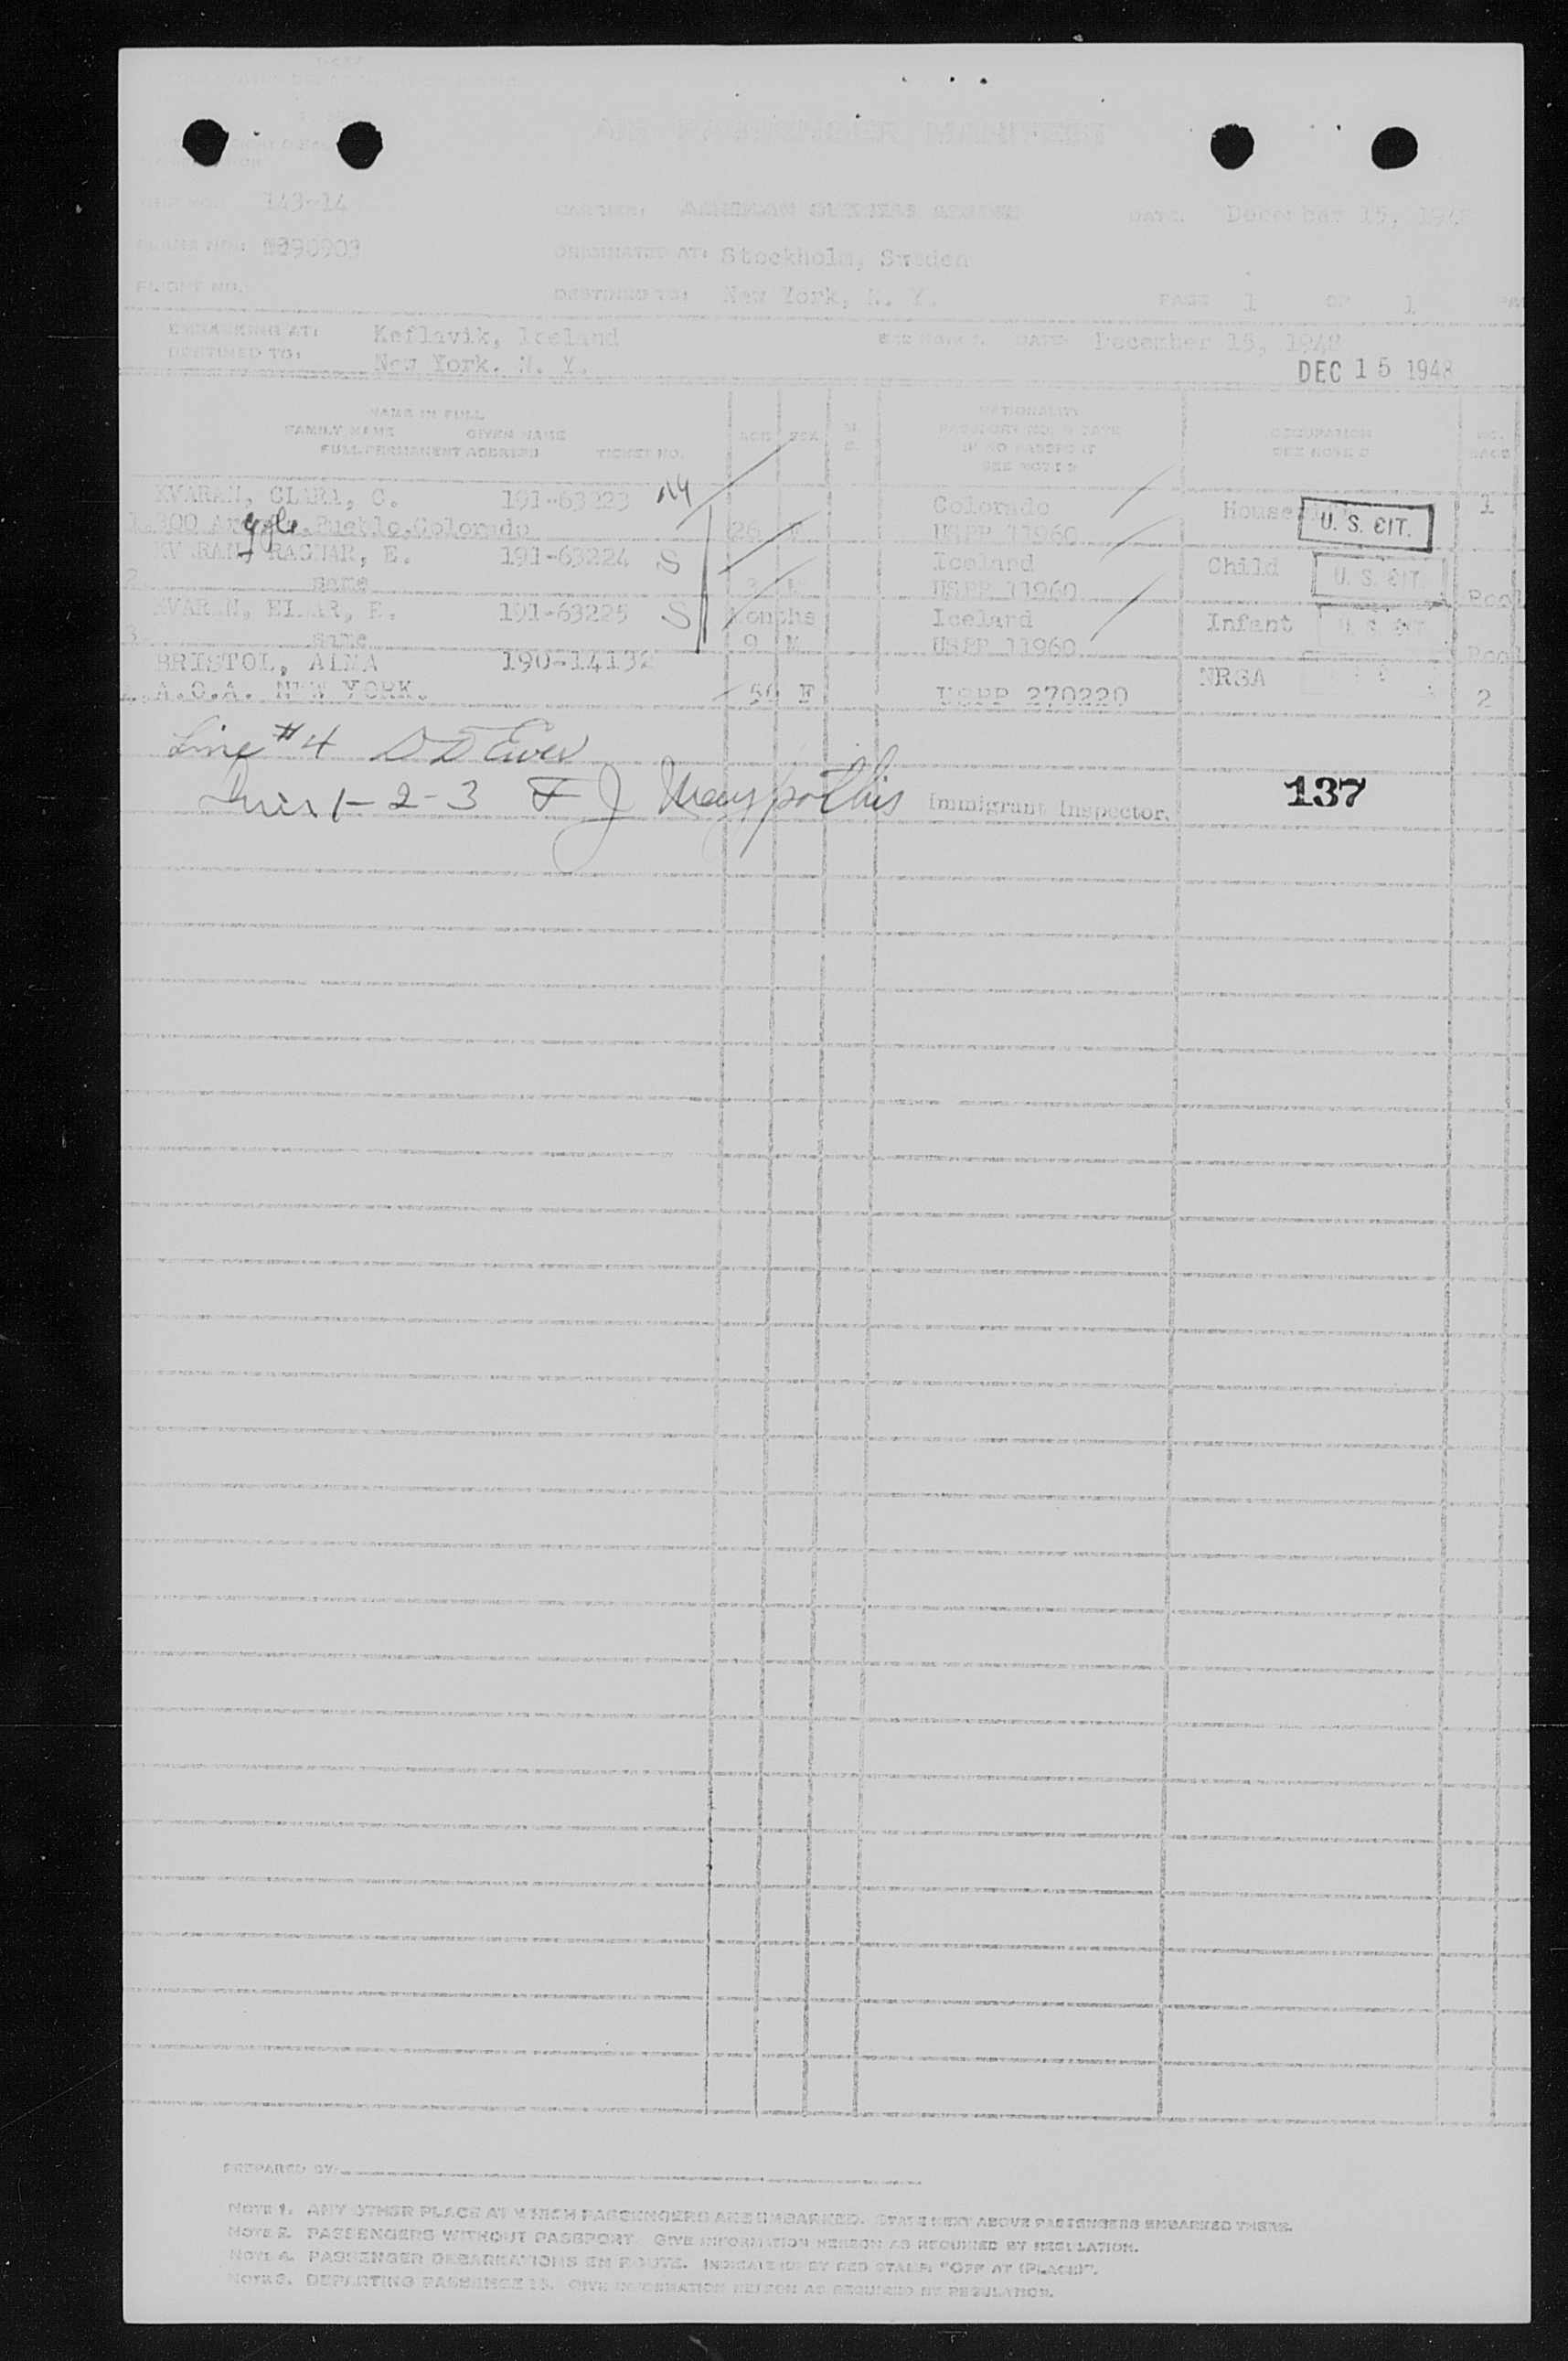 143-14
CARRIER: AMERICAN OVERSEAS AIRLINES DATE: December 15, 194
N90903 ORIGINATED AT: Stockholm, Sweden
FLIGHT NO.
DESTINED TO: New York, N. Y. PAGE 1 OF 1
EMBARKING AT: Keflavik, Iceland SEE NOTE 1. DATE December 15, 1948
DESTINED TO: New York. N. Y.
DEC 15 1948
NAME IN FULL
FAMILY NAME GIVEN NAME
FULL PERMANENT ADDRESS TICKET NO.
AGE SEX
NATIONALITY
PASSPORT NO. & DATE
IF NO PASSPORT
SEE NOTE 2
OCCUPATION
SEE NOTE
KVARAN, CLARA, C. 191-63223 Colorado 1
Pueblo, Colorado 26 F USPP 11960 U. S. CIT.
KVARAN, RAGNAR, E. 191-63224 S Iceland Child U. S. CIT.
2 same USPP 11960 Pool
KVARAN, EINAR, E. 191-63225 S Months Iceland Infant U. S. CIT.
3 same 9 M USPP 11960 Pool
BRISTOL, ALMA 190-14132 NRSA
A.O.A. NEW YORK. 50 F USPP 270220 2
Line #4
1-2-3 Immigrant Inspector. 137
PREPARED BY:
NOTE 1. ANY OTHER PLACE AT WHICH PASSENGERS ARE EMBARKED. STATE NEXT ABOVE PASSENGERS EMBARKED THERE.
NOTE 2. PASSENGERS WITHOUT PASSPORT. GIVE INFORMATION HEREON AS REQUIRED BY REGULATION.
NOTE 4. PASSENGER DEBARKATIONS EN ROUTE. INDICATE BY RED STAMP "OFF AT (PLACE)".
NOTE 3. DEPARTING PASSENGERS. GIVE INFORMATION HEREON AS REQUIRED BY REGULATION.